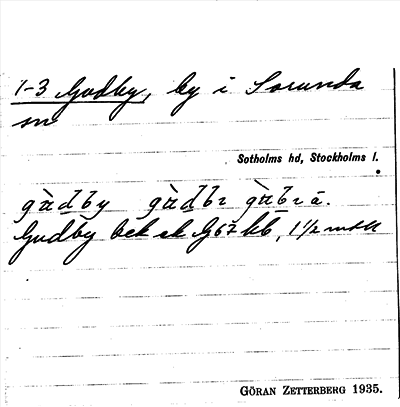 1-3 Gudby, by i Sorunda
sn
Sotholms hd, Stockholms l.
gùdby gùdbı gùbıa.
Gudby bek sk G67 kb, 1 1/2 mtl
GÖRAN ZETTERBERG 1935.